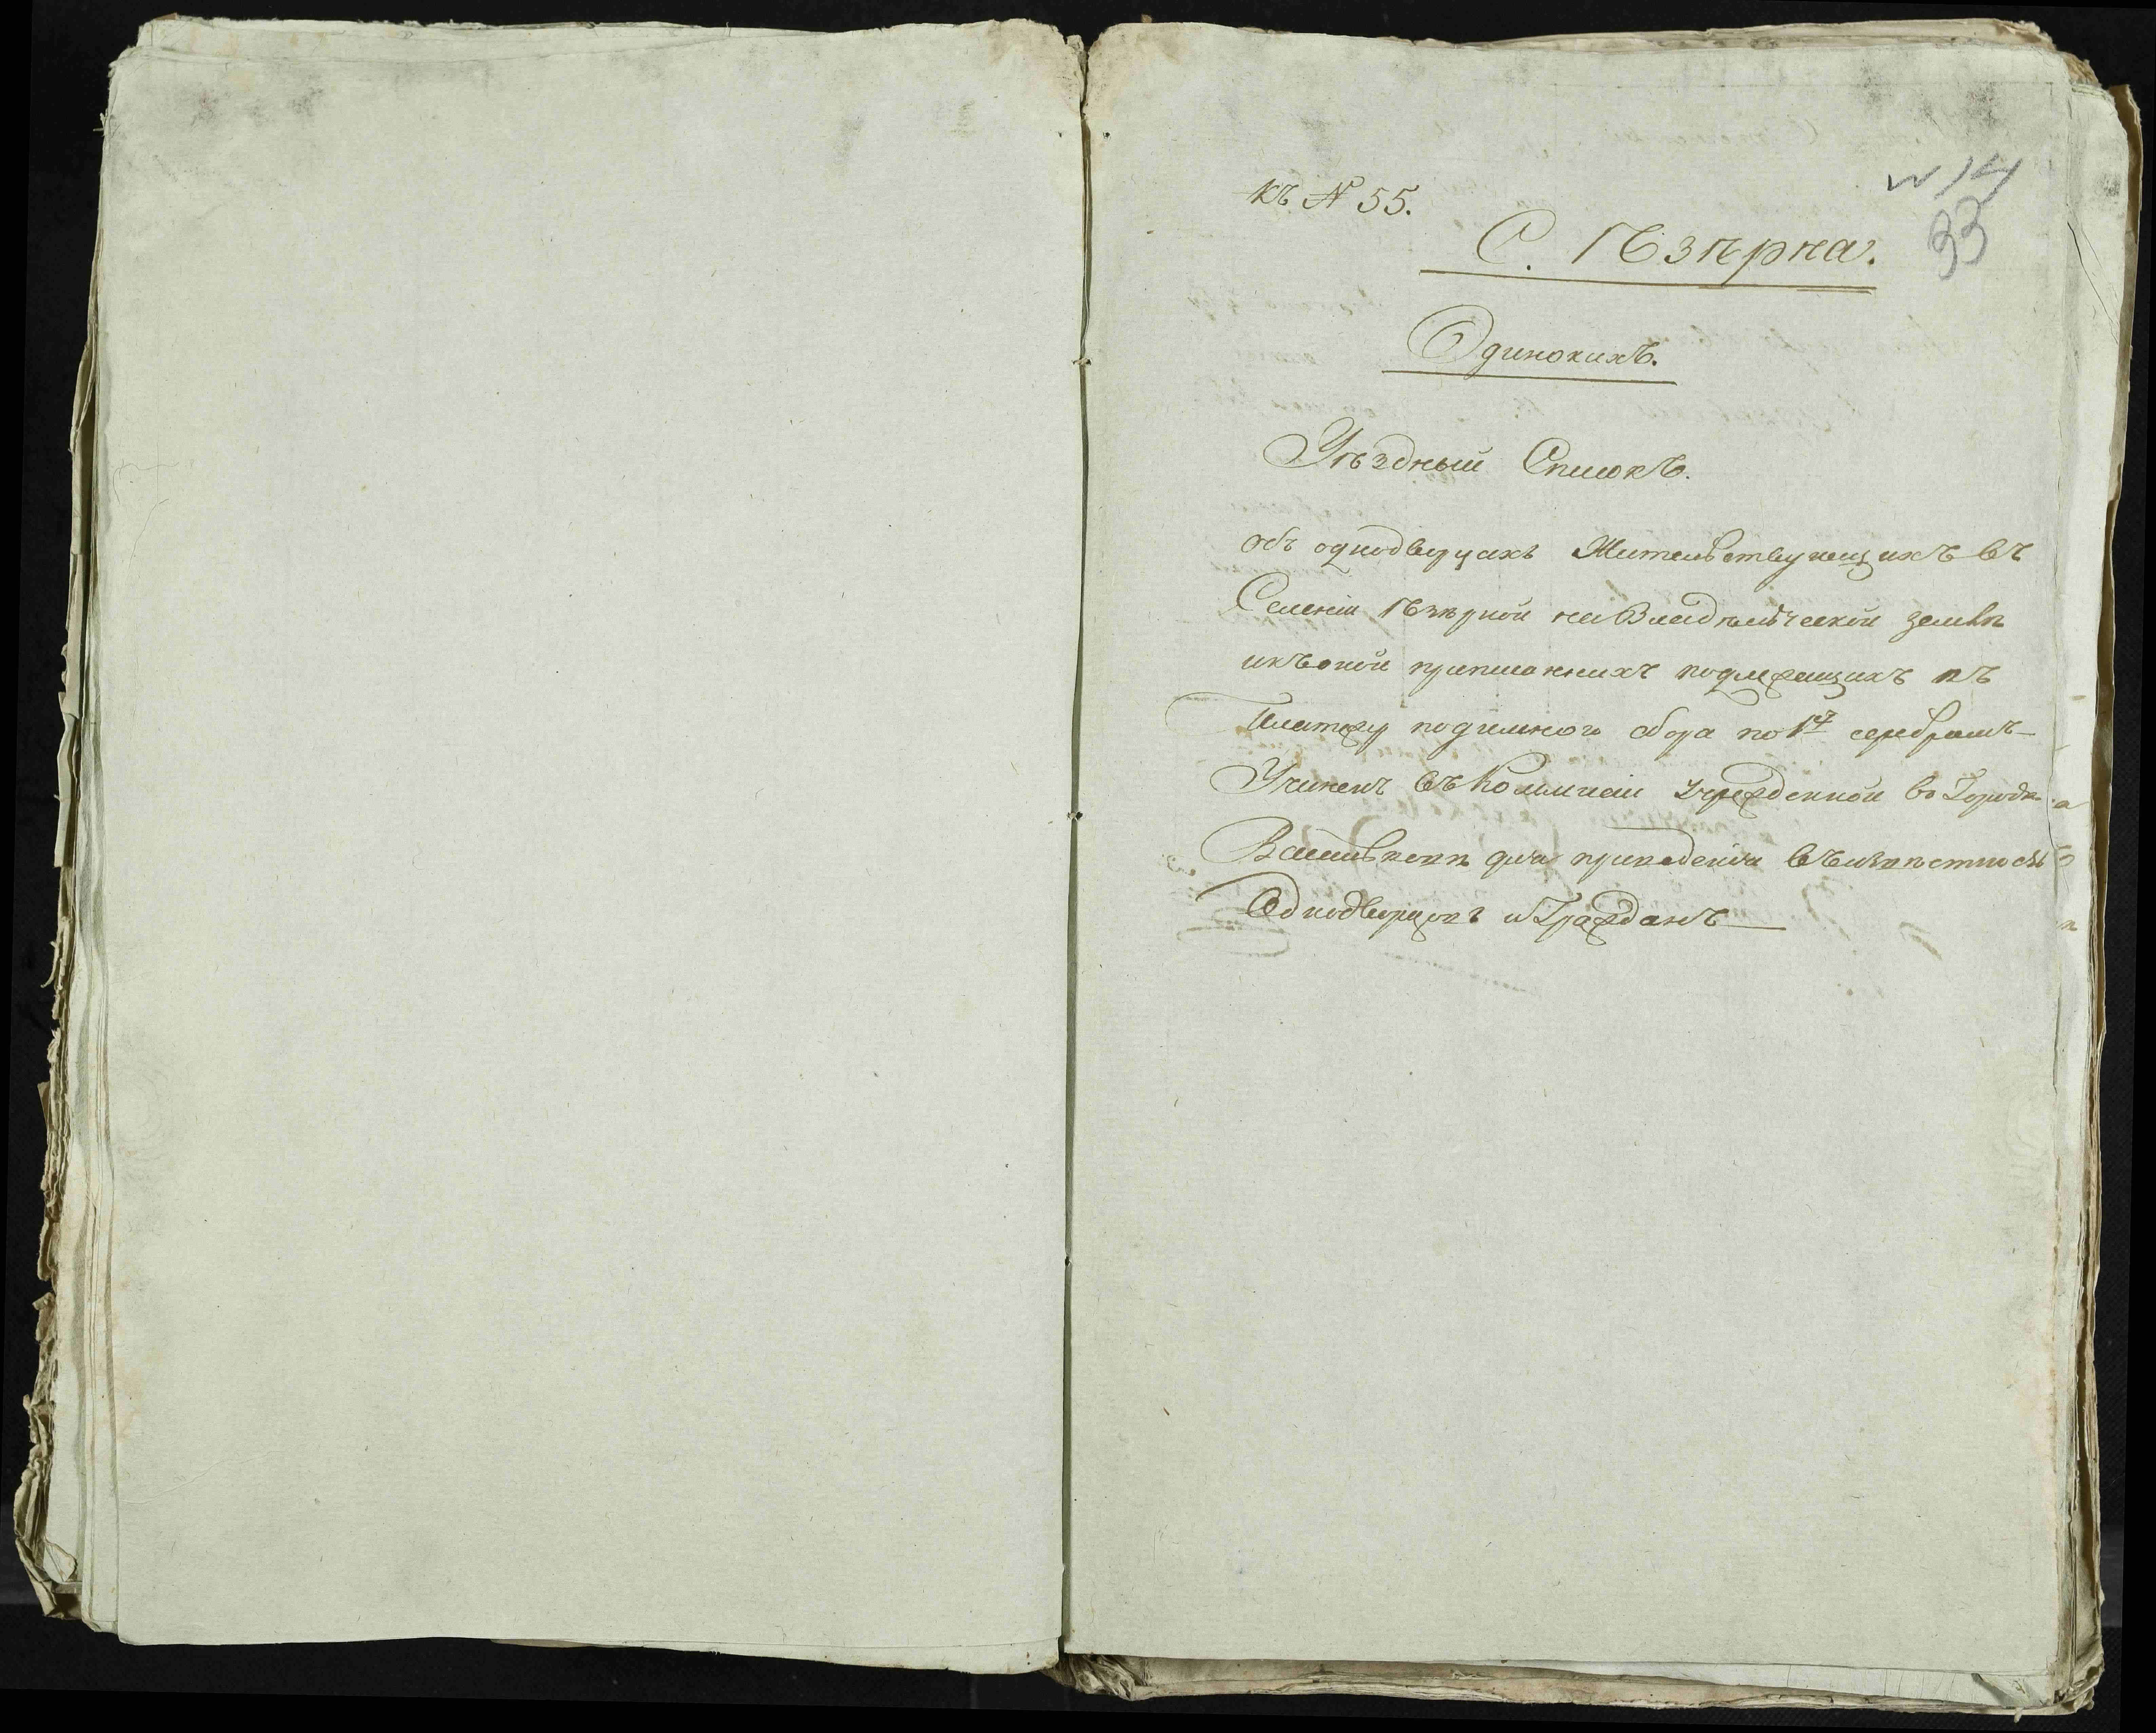 къ № 55.
№ 14
33
С. Ѣзѣрна.
Одинокихъ.
Уѣздный Списокъ.
объ однодворцахъ Жительствующихъ въ
Селеніи Ѣзѣрной на Владѣльческой землѣ
икъ оной приписанныхъ подлежащихъ въ
Платежу подымного сбора по 1 серебромъ
Учиненъ въ Коммисіи Учрежденной во Городѣ
Васильковѣ для приведенія въ извѣстность
Однодворцовъ и Гражданъ